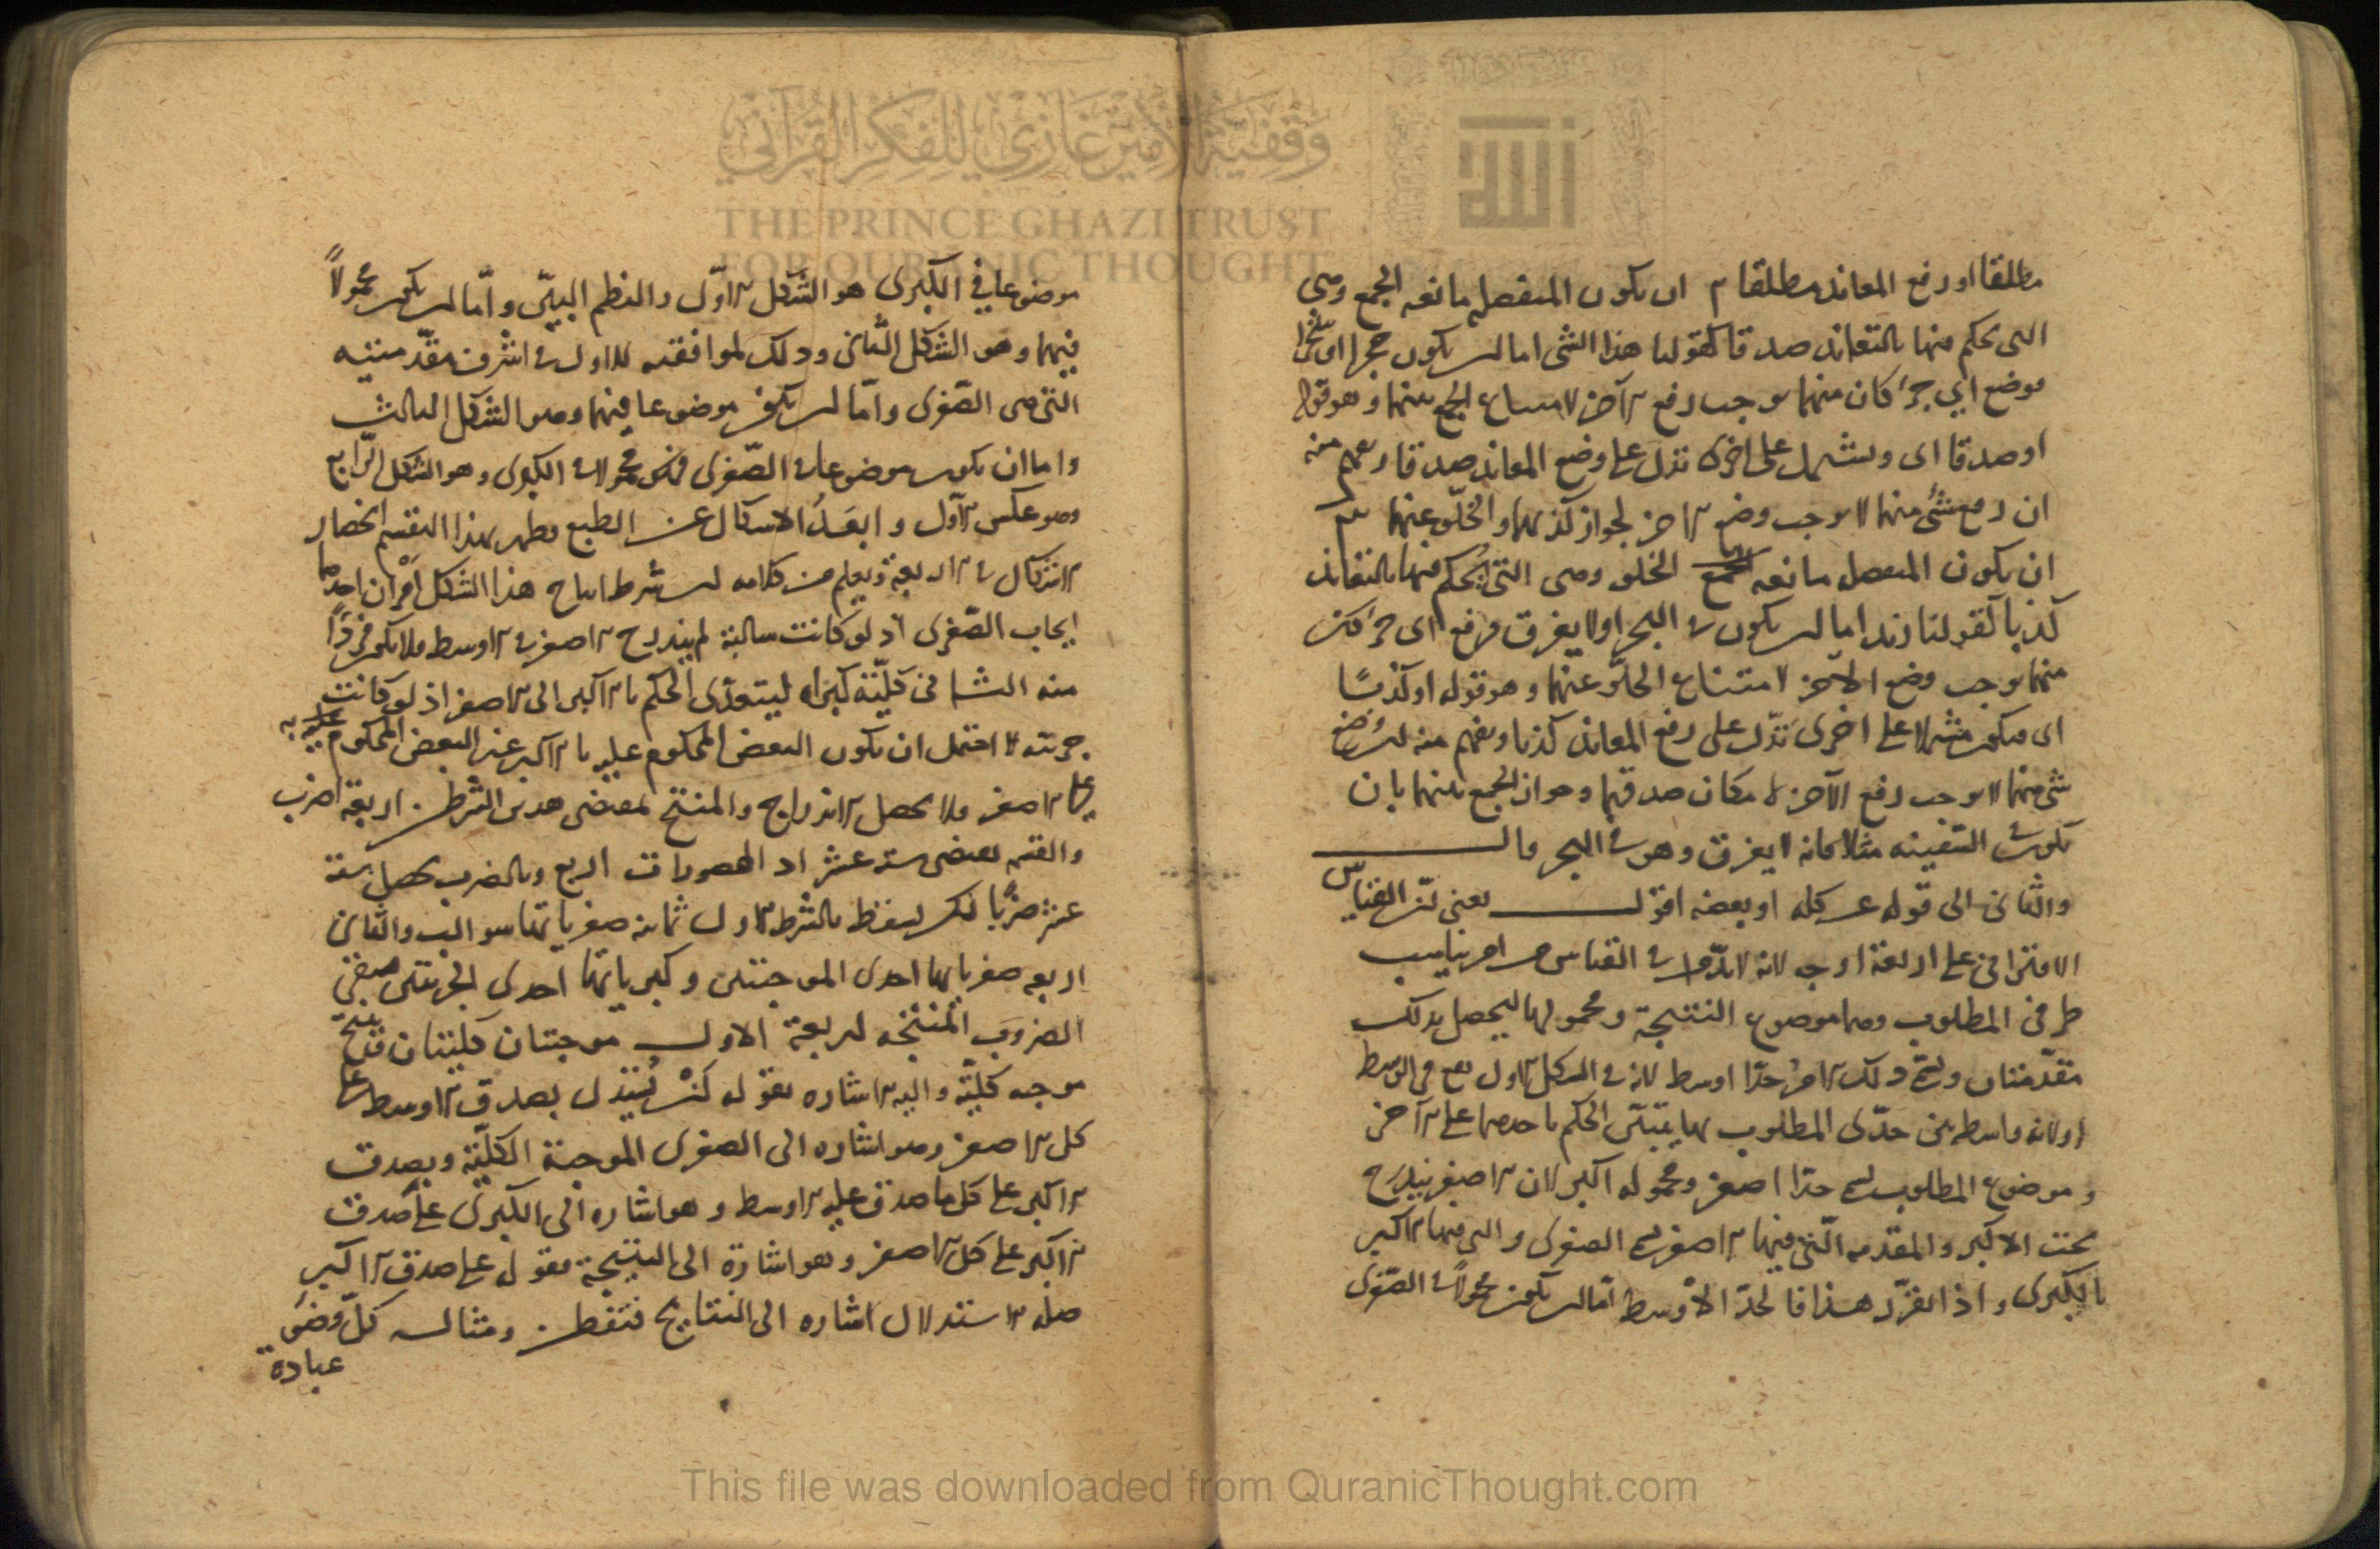 وقفية الأمير غازي للفكر القرآني
THE PRINCE GHAZI TRUST
FOR QURANIC THOUGHT
الله
مطلقا او رفع المعاند مطلقا ان يكون المنفصله مانعه الجمع وهى
التى يحكم فيها بالتعاند صدقا كقولنا هذا الشى اما ان يكون حجرا او شجرا
فوضع اي جزء كان منهما يوجب رفع الآخر لامتناع الجمع بينهما وهو قوله
او صدقا اى ويشتمل على اخرى تدل على وضع المعاند صدقا ويفهم منه
ان رفع شئ منهما لا يوجب وضع الآخر لجواز كذبهما والخلو عنهما
ان يكون المنفصل مانعه الخلو وهى التى يحكم فيها بالتعاند
كذبا كقولنا زيد اما ان يكون فى البحر او لا يغرق فرفع اى جزء كان
منهما يوجب وضع الآخر لامتناع الخلو عنهما وهو قوله او كذبا
اى فيكون مشتملا على اخرى تدل على رفع المعاند كذبا ويفهم منه ان وضع
شئ منهما لا يوجب رفع الآخر لامكان صدقهما وجواز الجمع بينهما بان
يكون فى السفينه مثلا فانه لا يغرق وهو فى البحر قال
والثانى الى قوله عن كله او بعضه اقول يعنى ان القياس
الاقترانى على اربعة اوجه لانه لابد فى القياس من امر يناسب
طرفى المطلوب وهما موضوع النتيجة ومحمولها ليحصل بذلك
مقدمتان ويسمى ذلك الامر حدا اوسط لانه فى الشكل الاول يقع فى الوسط
او لانه واسطه بين حدى المطلوب بها يتبين الحكم باحدهما على الآخر
وموضوع المطلوب يسمى حدا اصغر ومحموله اكبر لان الاصغر يندرج
تحت الاكبر والمقدمه التى فيها الاصغر يسمى الصغرى والتى فيها الاكبر
بالكبرى واذا تقرر هذا فالحد الاوسط اما ان يكون محمولا فى الصغرى
موضوعا فى الكبرى هو الشكل الاول والنظم البين واما ان يكون محمولا
فيهما وهو الشكل الثانى وذلك لموافقته للاول فى اشرف مقدمتيه
التى هى الصغرى واما ان يكون موضوعا فيهما وهو الشكل الثالث
واما ان يكون موضوعا فى الصغرى محمولا فى الكبرى وهو الشكل الرابع
وهو عكس الاول وابعد الاشكال عن الطبع وظهر بهذا التقسيم انحصار
الاشكال فى الاربعة ويعلم من كلامه ان شرط انتاج هذا الشكل امران احدهما
ايجاب الصغرى اذ لو كانت سالبة لم يندرج الاصغر فى الاوسط فلا يكون فردا
منه الثانى كلية كبراه ليتعدى الحكم بالاكبر الى الاصغر اذ لو كانت
جزئيه لاحتمل ان يكون البعض المحكوم عليه بالاكبر غير البعض المحكوم عليه به
على الاصغر فلا يحصل الاندراج والمنتج بمقتضى هذين الشرطين اربعة اضرب
والقسمه تقتضى سته عشر اذ المحصورات اربع وبالضرب يحصل سته
عشر ضربا لكن يسقط بالشرط الاول ثمانيه صغرياتها سوالب والثانى
اربعه صغرياتها احدى الموجبتين وكبرياتها احدى الجزئيتين فبقى
الضروب المنتجه اربعة الاول موجبتان كليتان ينتج
موجبه كلية واليه الاشاره بقوله كمن يستدل بصدق الاوسط على
كل الاصغر وهو اشاره الى الصغرى الموجبة الكلية وبصدق
الاكبر على كل ما صدق عليه الاوسط وهو اشاره الى الكبرى على صدق
الاكبر على كل الاصغر وهو اشارة الى النتيجة فقوله على صدق الاكبر
صله الاستدلال اشاره الى النتايج فتفطن ومثاله كل وضوء
عبادة
This file was downloaded from QuranicThought.com